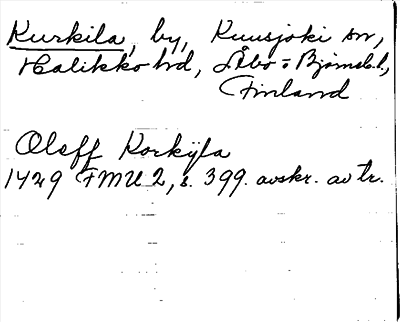 Kurkila, by, Kuusjoki sn,
Halikko hd, Åbo o Björneb. l,
Finland
Oleff Korkÿla
1429 FMU 2, s. 399. avskr. av tr.